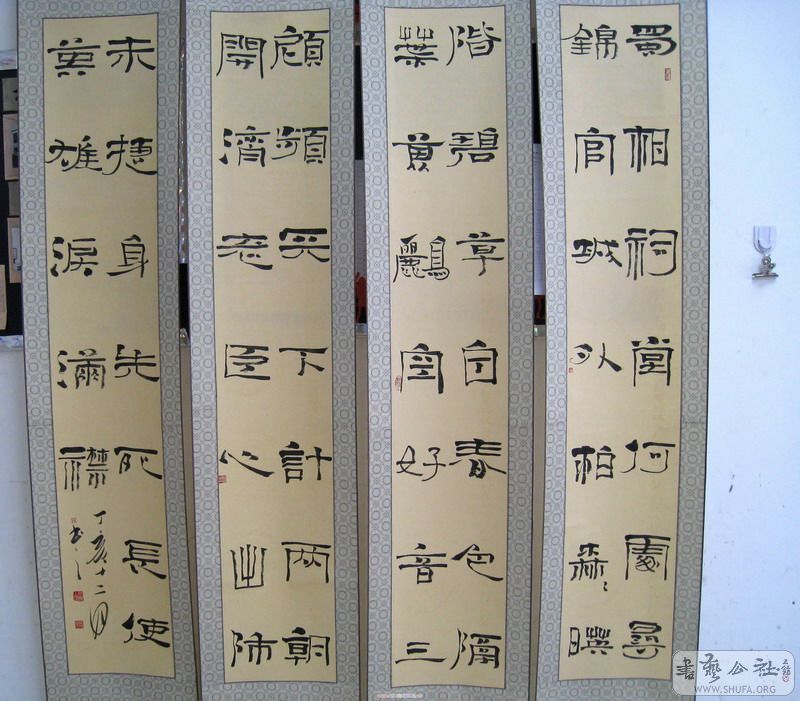 蜀相祠堂何處尋
錦官城外柏森〻暎
階碧草自春色隔
葉黃鸝空好音三
顧頻天下計兩朝
開濟老臣心出師
未捷身先死長使
英雄淚滿襟
丁亥十二月
書藝公社
WWW.SHUFA.ORG